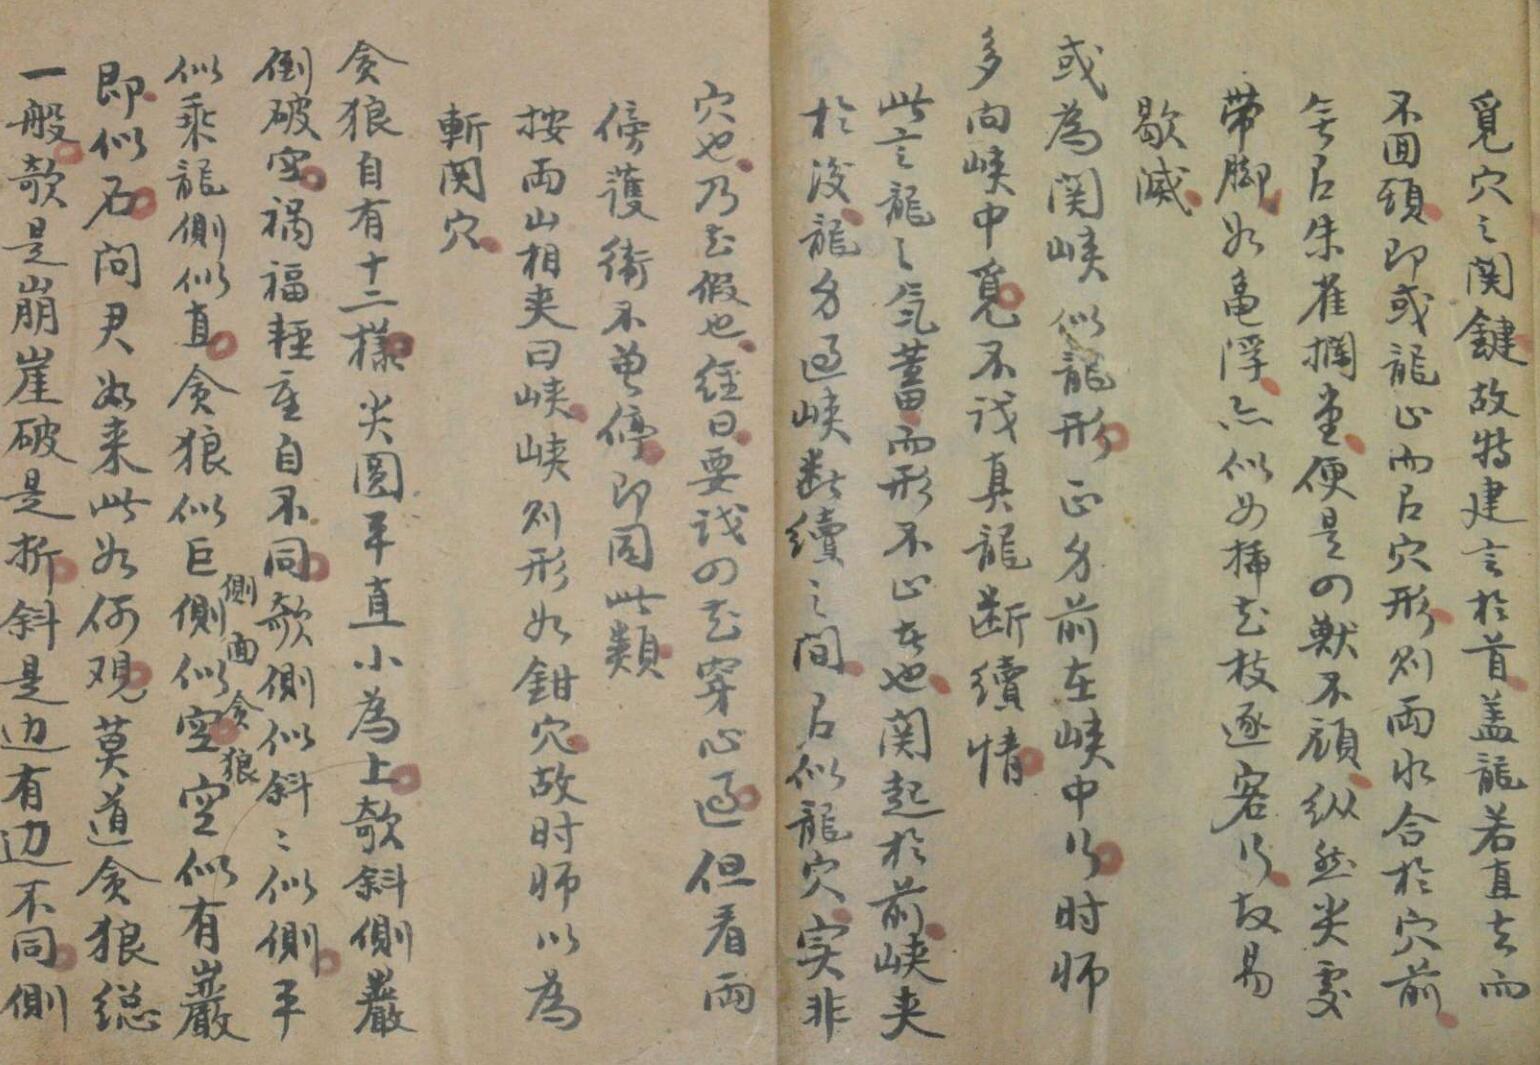 覓穴之関鍵故特建言於首盖龍若直去而
不回頭即或龍心而后穴形则兩水合於穴前
后朱雀攔堂便是の獸不顧纵然尖
帶脚如亀浮亦似如插花枝逐客行故易
歇滅
或為関峡似龍形正分前在峡中行时师
多向峡中覓不识真龍断續情
此言龍之氣蓄而形不止去也関起於前峡夹
於後龍分过峡断續之间后似龍穴实非
穴也乃花假也經曰要识の花穿心过但看兩
傍護衛不曾停即同此類
按兩山相夹曰峡峡则形如鉗穴故时师以為
斬関穴
貪狼自有十二樣尖圓平直小為上欹斜側巖
倒破空禍福輕重自不同欹側似斜斜似側平
側面貪狼
似乘龍側似直貪狼似巨側似空空似有巖
即似石问君如来此如何观莫道貪狼総
一般欹是崩崖破是折斜是边有边不同側